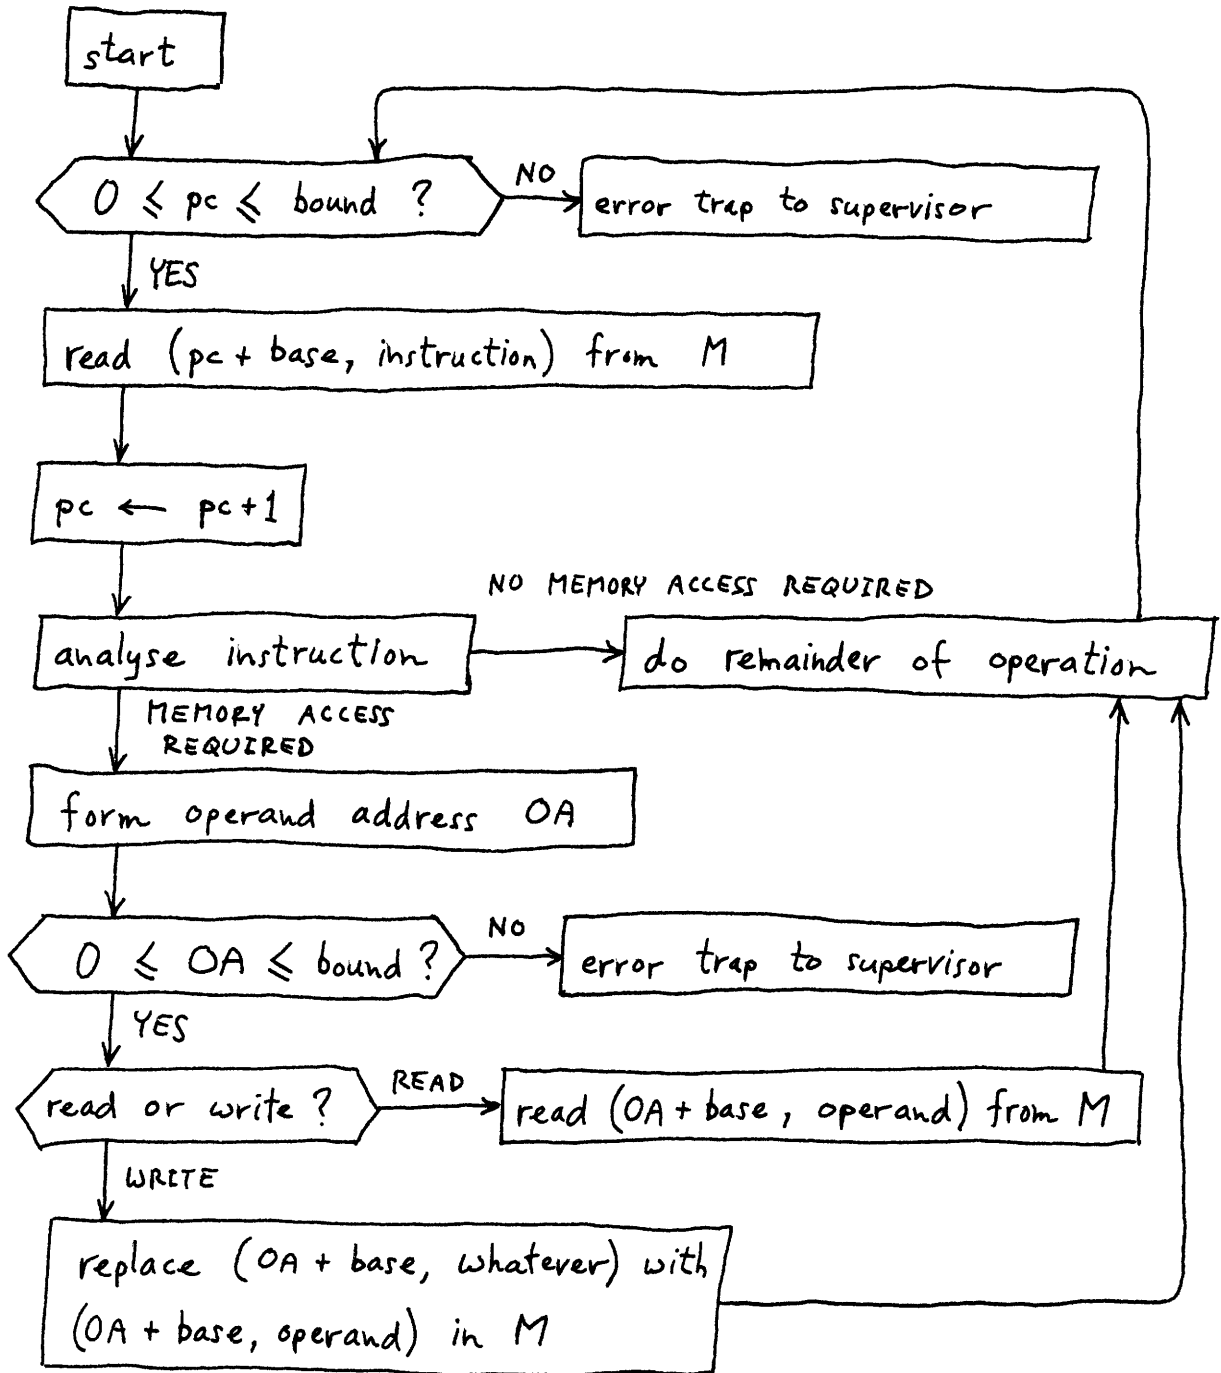 start
0 ⩽ pc ⩽ bound ?
NO
error trap to supervisor
YES
read (pc + base, instruction) from M
pc ← pc + 1
NO MEMORY ACCESS REQUIRED
analyse instruction
do remainder of operation
MEMORY ACCESS
REQUIRED
form operand address OA
0 ⩽ OA ⩽ bound ?
NO
error trap to supervisor
YES
read or write ?
READ
read (OA + base, operand) from M
WRITE
replace (OA + base, whatever) with
(OA + base, operand) in M